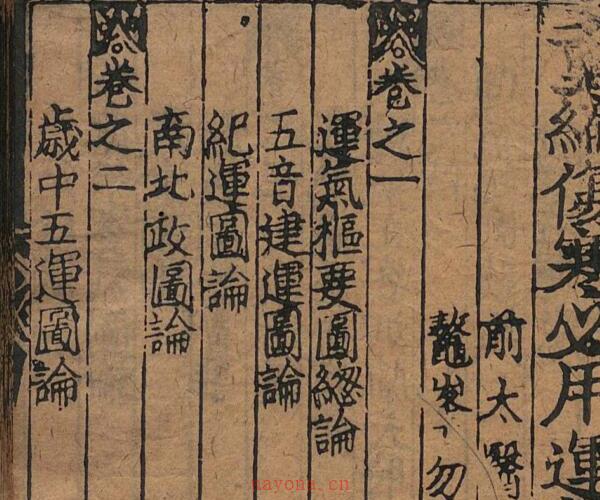 編傷寒必用運
前太醫
鼇峯勿
卷之一
運氣樞要圖緫論
五音建運圖論
紀運圖論
南北政圖論
卷之二
歲中五運圖論
nayona.cn